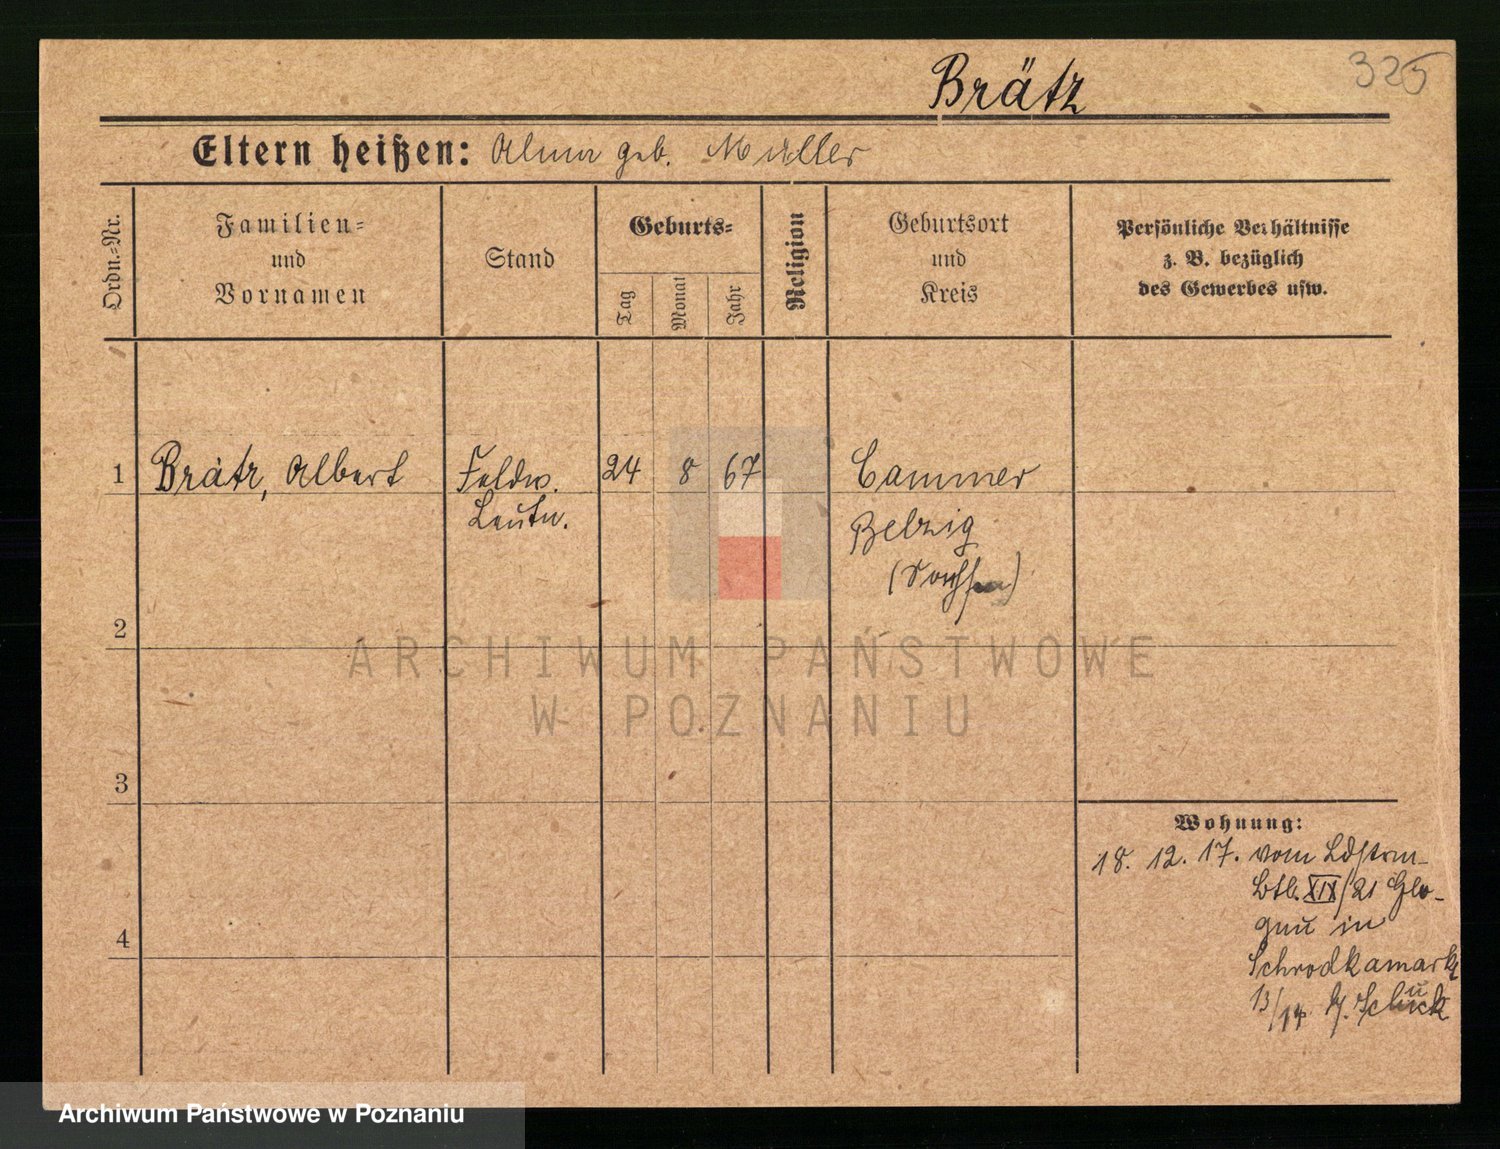 325
Brätz
Eltern heißen: Alma geb. Müller
Ordn.-Nr.
Familien-
und
Vornamen
Stand
Geburts-
Tag
Monat
Jahr
Religion
Geburtsort
und
Kreis
Persönliche Verhältnisse
z. B. bezüglich
des Gewerbes usw.
1 Brätz, Albert Feldw. 24 8 67 Cammer
Leutn.
Belzig
(Sachsen)
2
3
4
Wohnung:
18. 12. 17. vom Ldstrm-
Btl. XIX/21 Glo-
gau in
Schrodkamarkt
13/14 b/. Schuck
ARCHIWUM PAŃSTWOWE
W POZNANIU
Archiwum Państwowe w Poznaniu